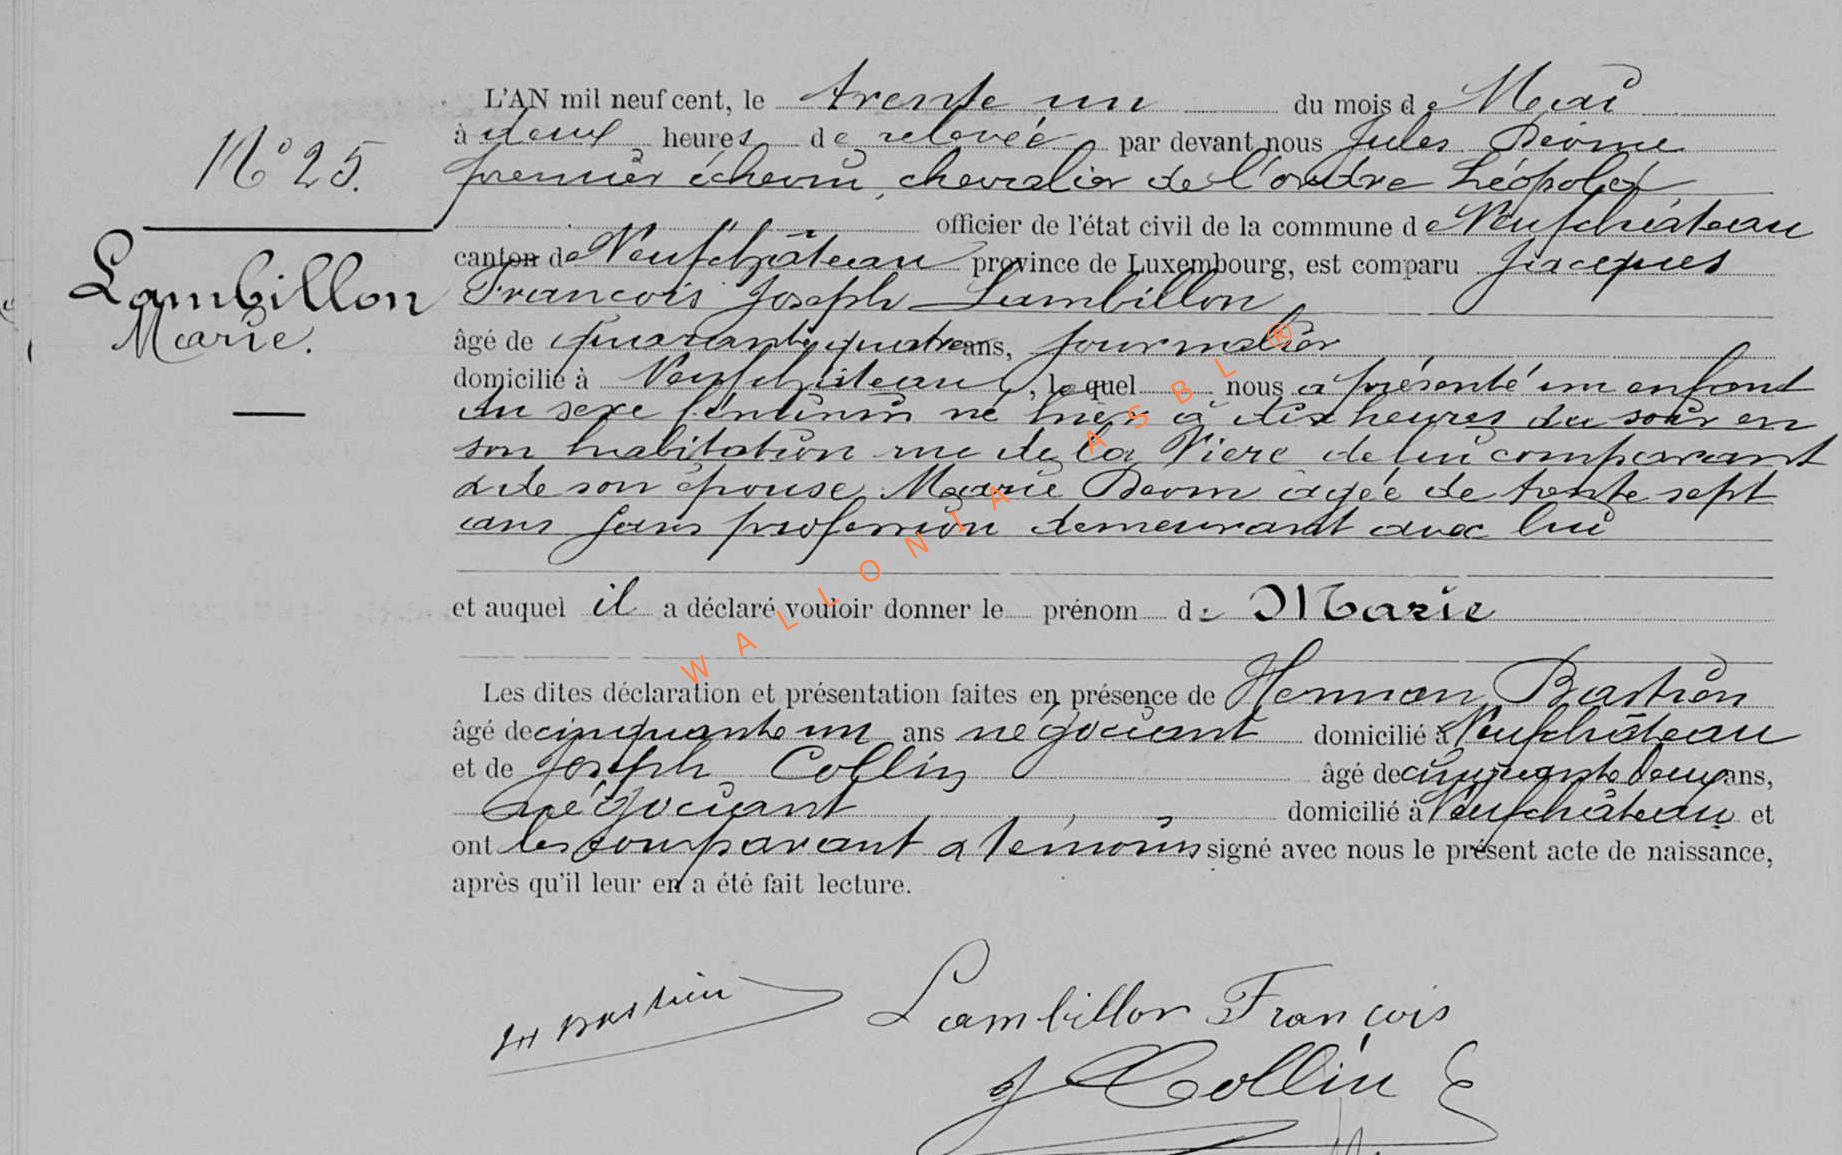 L'AN mil neuf cent, le trente un du mois de Mai
à deux heures de relevée par devant nous Jules Déome
N° 25.
premier échevin, chevalier de l'ordre Léopold
officier de l'état civil de la commune de Neufchâteau
canton de Neufchâteau province de Luxembourg, est comparu Jacques
Lambillon
Marie.
François Joseph Lambillon
âgé de quarante quatre ans, journalier
domicilié à Neufchâteau, lequel nous a présenté un enfant
du sexe féminin né hier à dix heures du soir en
son habitation rue de la de lui comparant
& de son épouse Marie Deom agée de trente sept
ans sans profession demeurant avec lui
et auquel il a déclaré vouloir donner le prénom de Marie
Les dites déclaration et présentation faites en présence de Herman Bastien
âgé de cinquante un ans négociant domicilié à Neufchâteau
et de Joseph Collin âgé de cinquante deux ans,
négociant domicilié à Neufchâteau et
ont les comparant & témoins signé avec nous le présent acte de naissance,
après qu'il leur en a été fait lecture.
WALLONIA ASBL ®
H Bastien
Lambillon François
J Collin